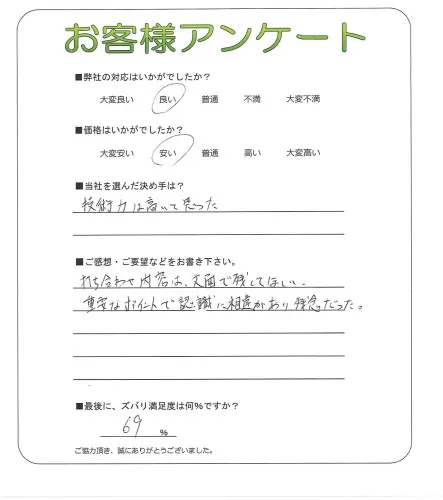 お客様アンケート
■弊社の対応はいかがでしたか?
大変良い 良い 普通 不満 大変不満
■価格はいかがでしたか?
大変安い 安い 普通 高い 大変高い
■当社を選んだ決め手は?
技術力は高いと思った
■ご感想・ご要望などをお書き下さい。
打ち合わせ内容は、文面で残してほしい.
重要なポイントで認識に相違があり残念だった。
■最後に、ズバリ満足度は何%ですか?
69 %
ご協力頂き、誠にありがとうございました。